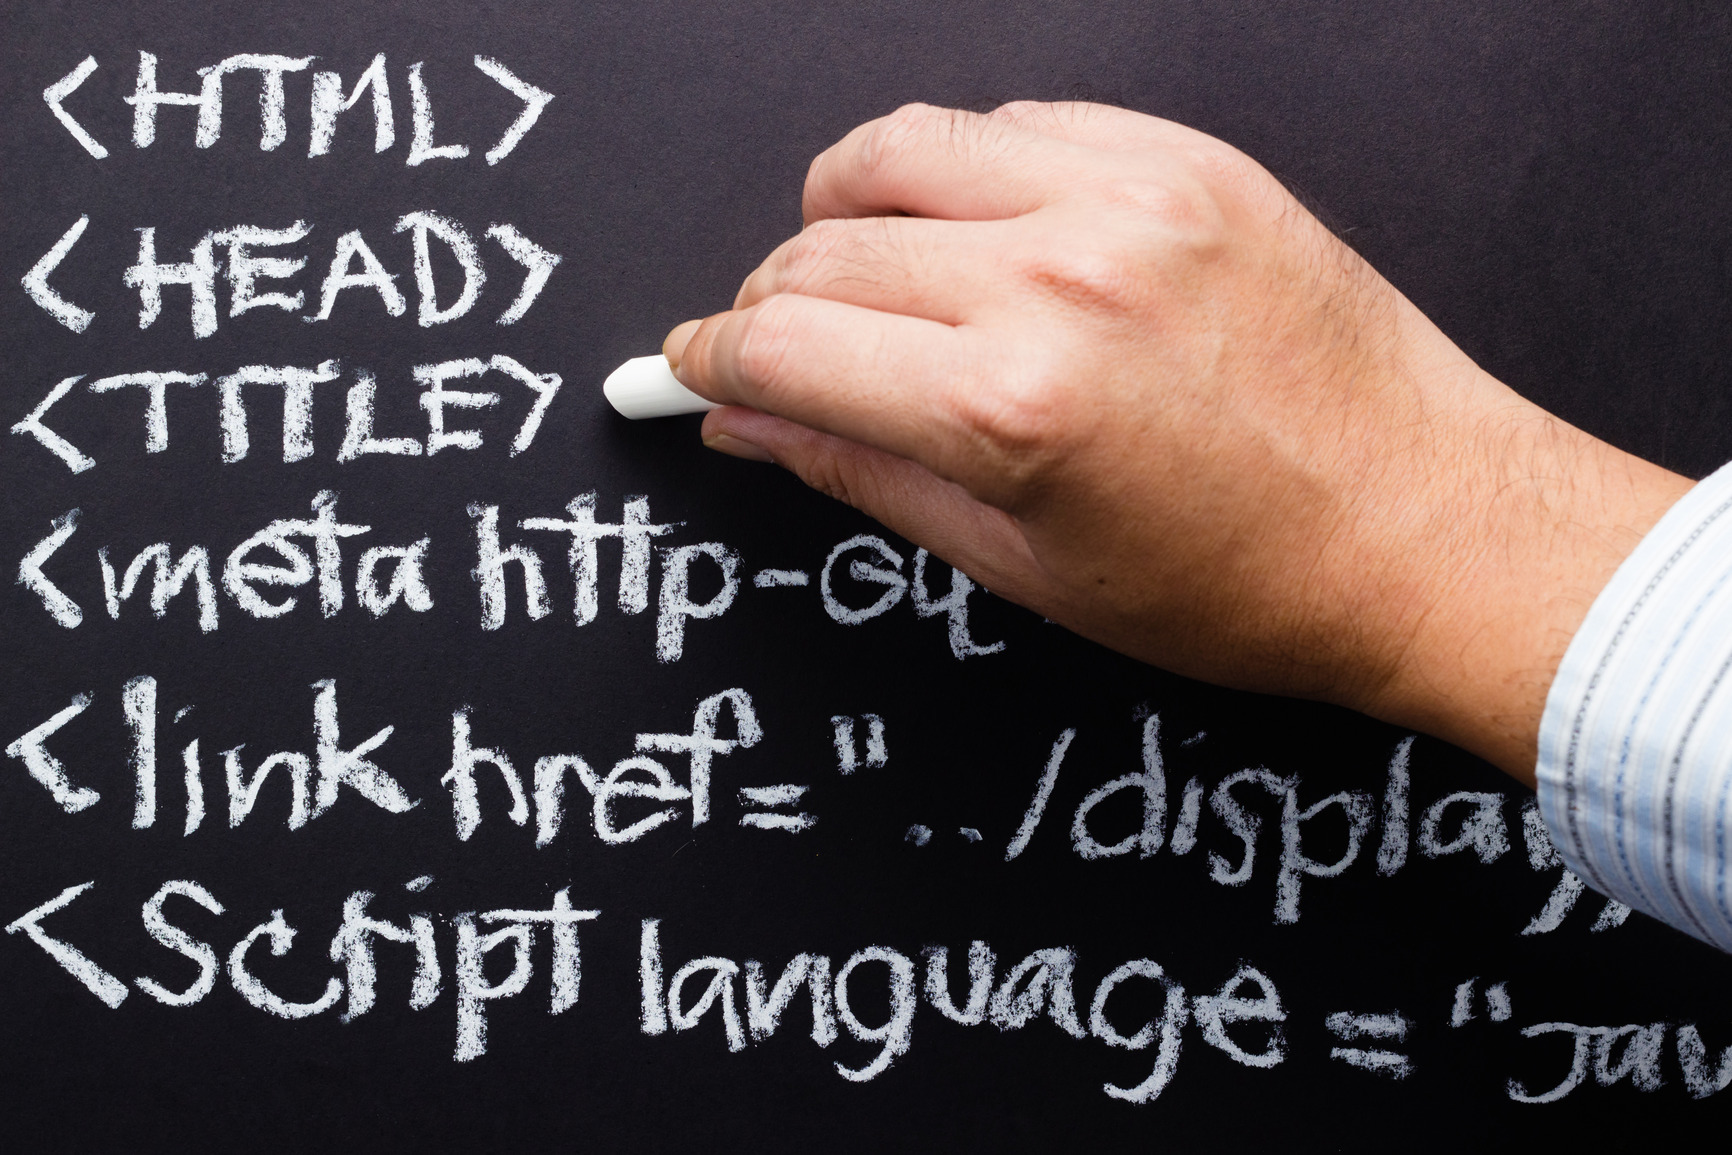 <HTML>
<HEAD>
<TITLE>
<meta http-eq
<link href=" ../display
<Script language = "Jav